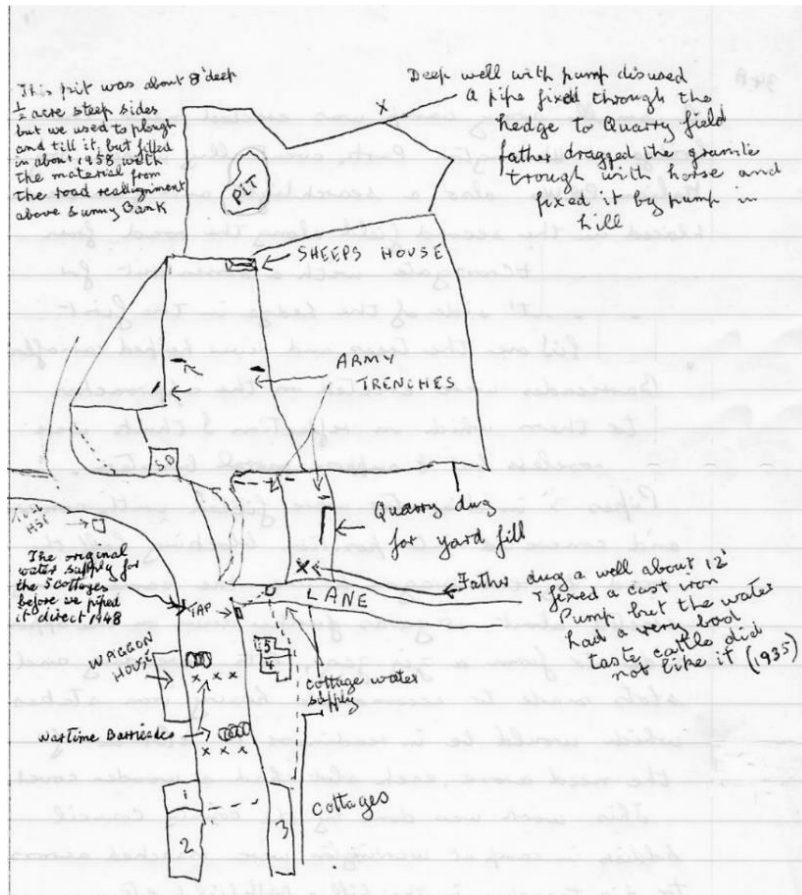 This pit was about 8' deep
½ acre steep sides
but we used to plough
and till it, but filled
in about 1958 with
the material from
the road realignment
above Sunny Bank
Deep well with pump disused
A pipe fixed through the
hedge to Quarry field
father dragged the granite
trough with horse and
fixed it by pump in
hill
X
PIT
SHEEPS HOUSE
ARMY
TRENCHES
SD
Quarry dug
for yard fill
X
TOLL
HSE
The original
water supply for
the 5 cottages
before we piped
it direct 1948
TAP
LANE
Father dug a well about 12'
& fixed a cast iron
Pump but the water
had a very bad
taste cattle did
not like it (1935)
WAGGON
HOUSE
5
4
x x x
Cottage water
supply
Wartime Barricades
x x x
1
2
3
Cottages